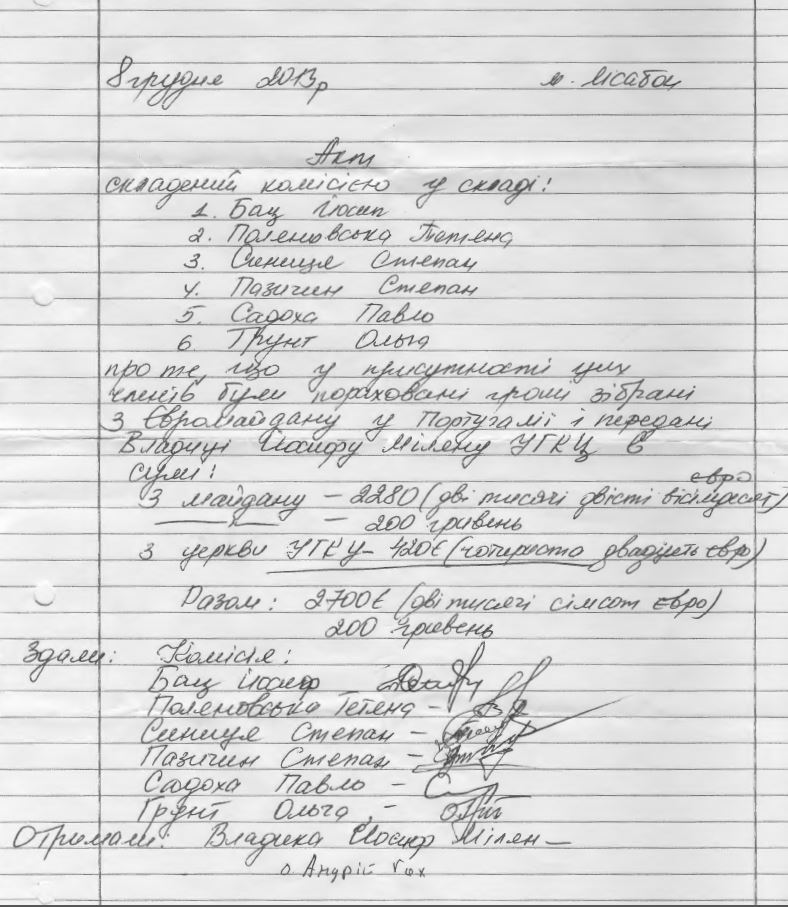 8 грудня 2013р м. Лісабон
Акт
складений комісією у складі:
1. Бац Йосип
2. Поленовська Тетяна
3. Синиця Степан
4. Пазичин Степан
5. Садоха Павло
6. Грунт Ольга
про те, що у присутності цих
членів були пораховані гроші зібрані
З Євромайдану у Португалії і передані
Владиці Йосифу Міляну УГКЦ в
сумі:
З майдану – 2280 (дві тисячі двісті вісімдесят) євро
– 200 гривень
З церкви УГКЦ – 420€ (чотириста двадцять євро)
Разом: 2700€ (дві тисячі сімсот євро)
200 гривень
Здали: Комісія:
Бац Йосиф
Поленовська Тетяна –
Синиця Степан –
Пазичин Степан –
Садоха Павло –
Грунт Ольга, –
Отримали: Владика Йосиф Мілян –
о. Андрій